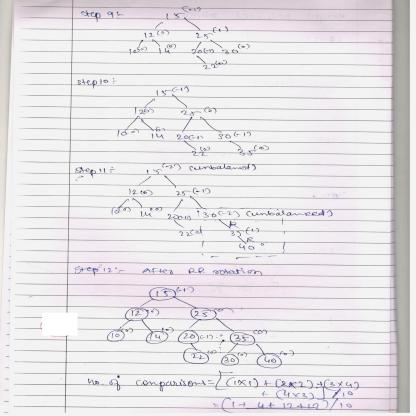 Step 9:-
15(-1)
12(0) 25(1)
10(0) 14(0) 20(-1) 30(0)
22(0)
Step 10:-
15(-1)
12(0) 25(0)
10(0) 14 20(-1) 30(-1)
22(0) 35(0)
Step 11:-
15(-2) (unbalanced)
12(0) 25(-1)
10(0) 14(0) 20(-1) 30(-2) (unbalanced)
R
22(0) 35(-1)
R
40
Step 12:- After RR rotation
15(-1)
12(0) 25
10(0) 14(0) 20(-1) 35(0)
22(0) 30(0) 40(0)
No. of comparison = [(1x1) + (2x2) + (3x4)
+ (4x3)]/10
= (1+4+12+12)/10